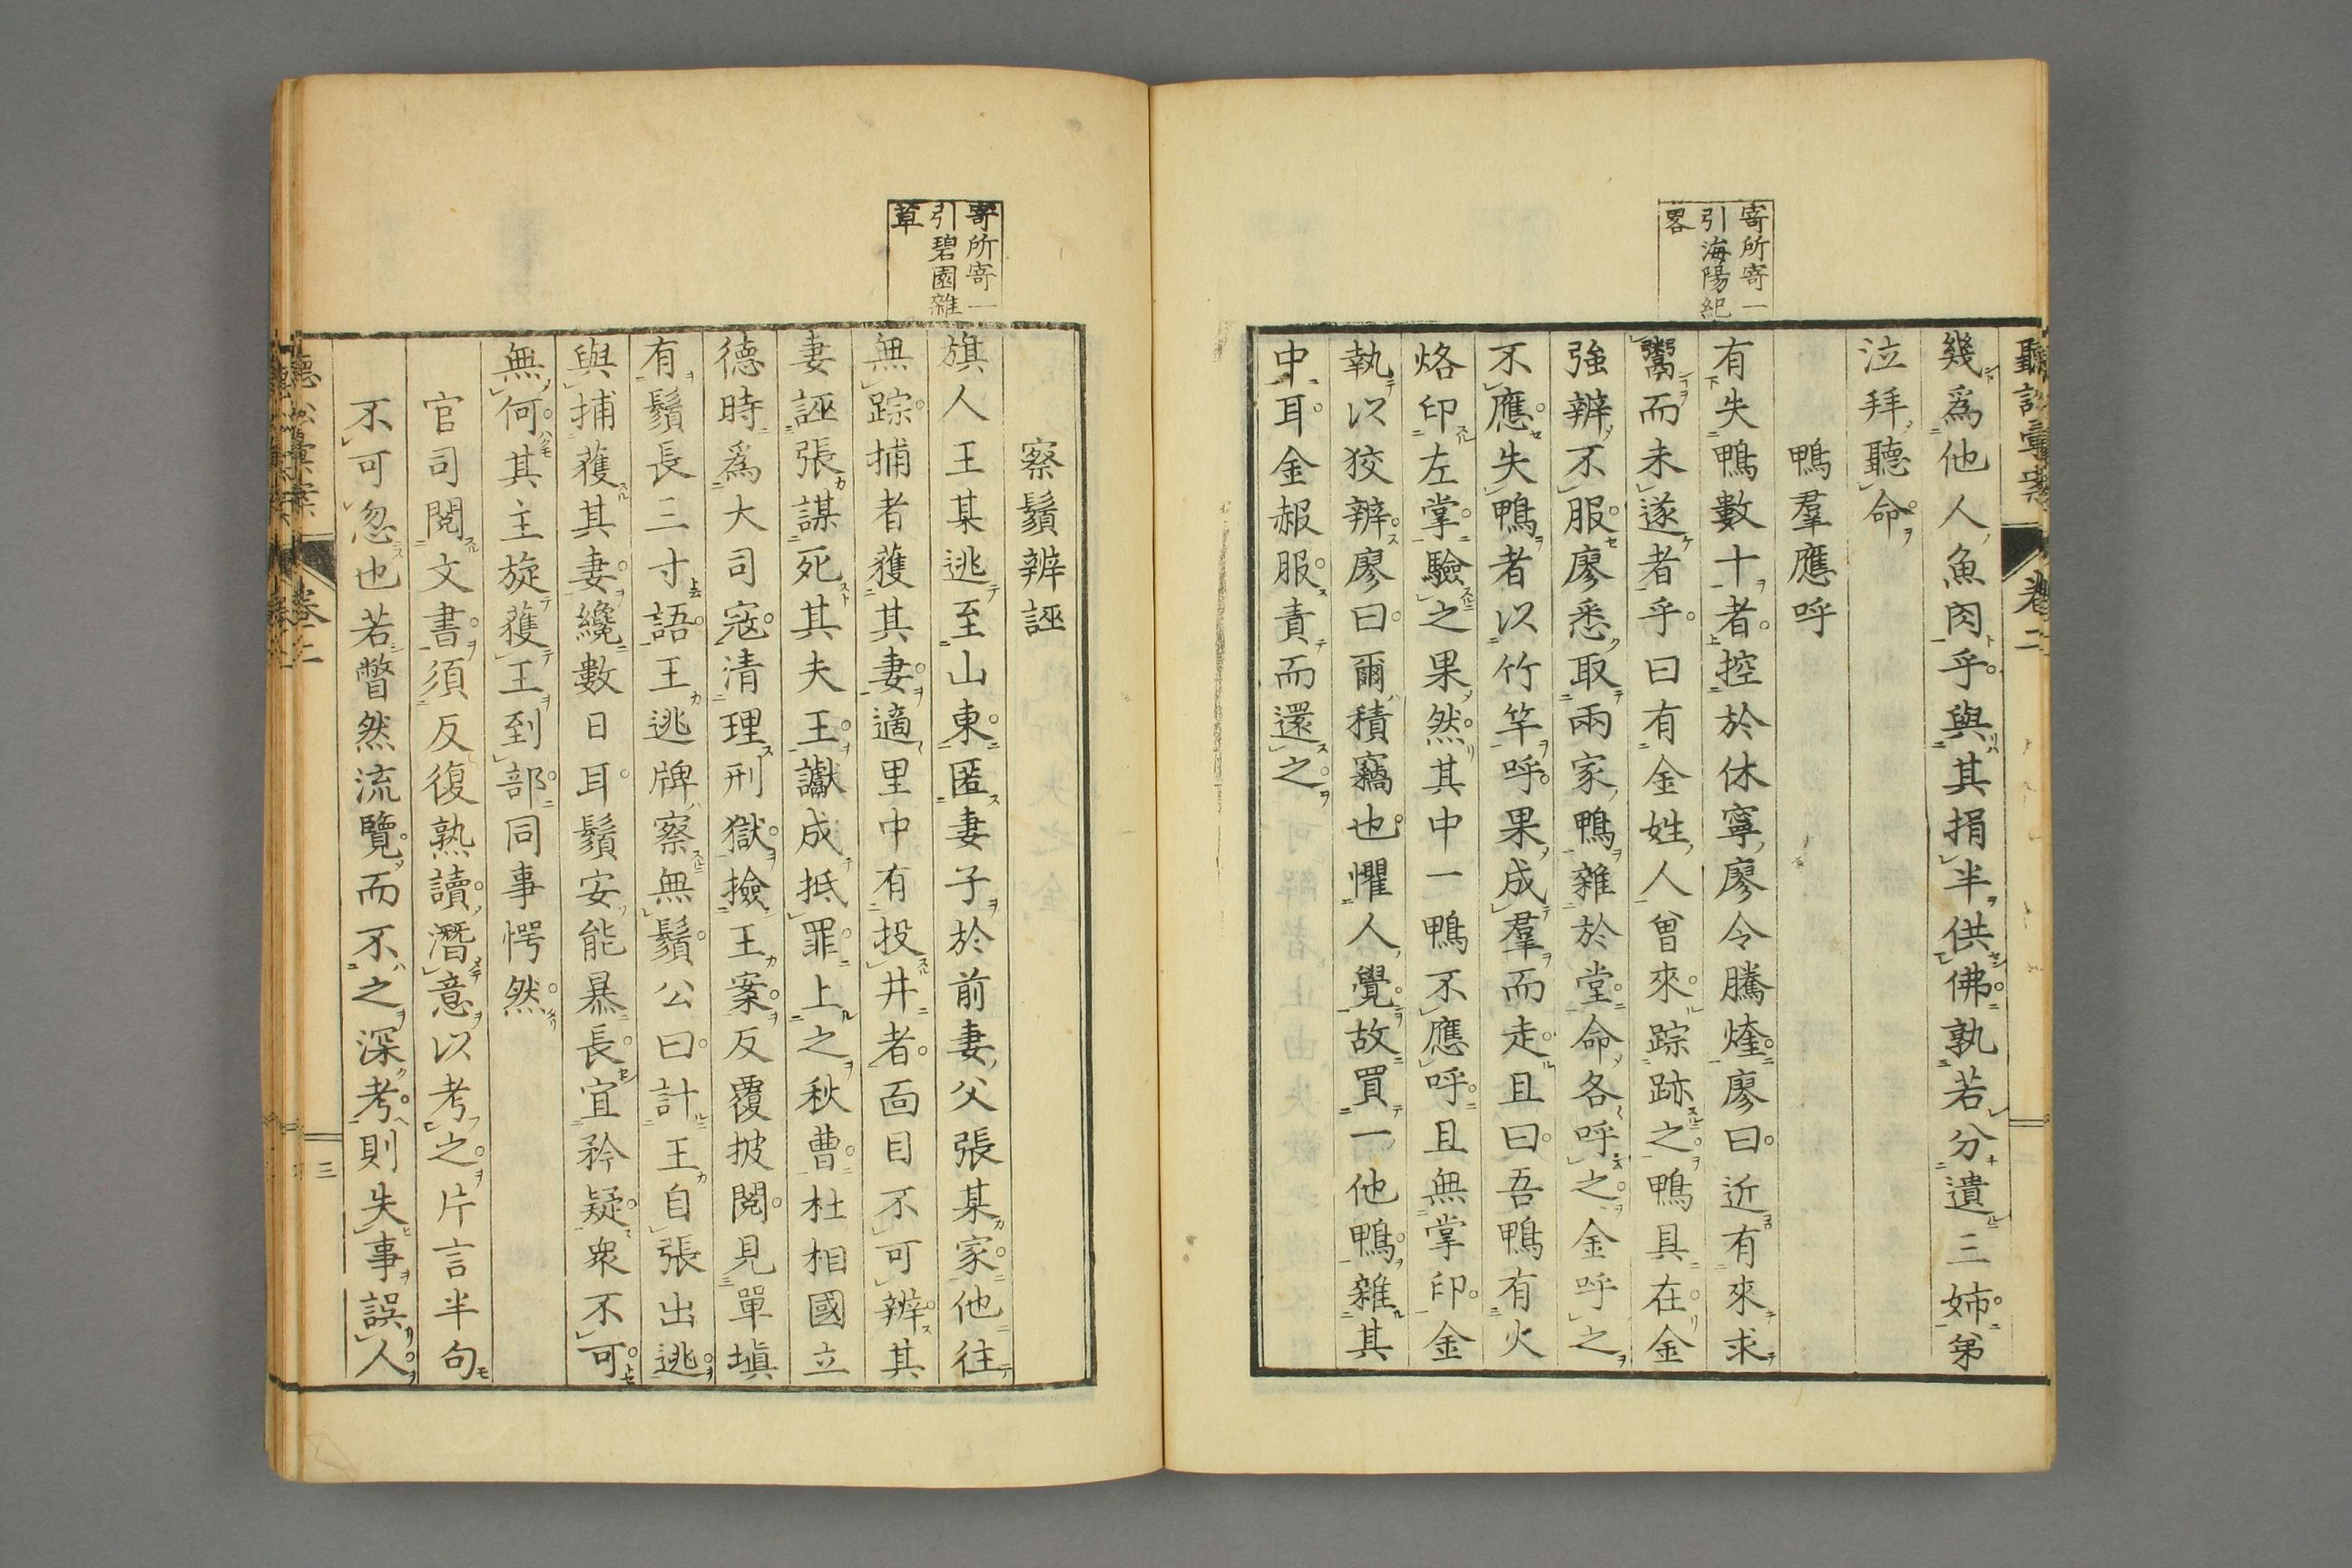 聽訟彙案
卷二
幾爲他人魚肉乎與其捐半供佛孰若分遺三姉弟
泣拜聽命
鴨羣應呼
寄所寄一
引海陽紀
畧
有失鴨數十者控於休寧廖令騰煃廖曰近有來求
鬻而未遂者乎曰有金姓人曾來踪跡之鴨具在金
強辨不服廖悉取兩家鴨雜於堂命各呼之金呼之
不應失鴨者以竹竿呼果成羣而走且曰吾鴨有火
烙印左掌驗之果然其中一鴨不應呼且無掌印金
執以狡辨廖曰爾積竊也懼人覺故買一他鴨雜其
中耳金赧服責而還之
察鬚辨誣
寄所寄一
引碧園雜
草
旗人王某逃至山東匿妻子於前妻父張某家他往
無踪捕者獲其妻適里中有投井者面目不可辨其
妻誣張謀死其夫王讞成抵罪上之秋曹杜相國立
德時爲大司寇清理刑獄撿王案反覆披閱見單塡
有鬚長三寸語王逃牌察無鬚公曰計王自張出逃
與捕獲其妻纔數日耳鬚安能暴長宜矜疑衆不可
無何其主旋獲王到部同事愕然
官司閱文書須反復熟讀潛意以考之片言半句
不可忽也若瞥然流覽而不之深考則失事誤人
卷二
三